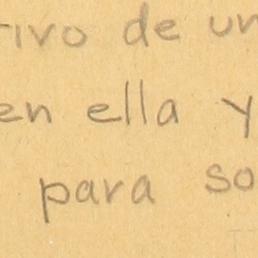 tivo de un
en ella y
para so